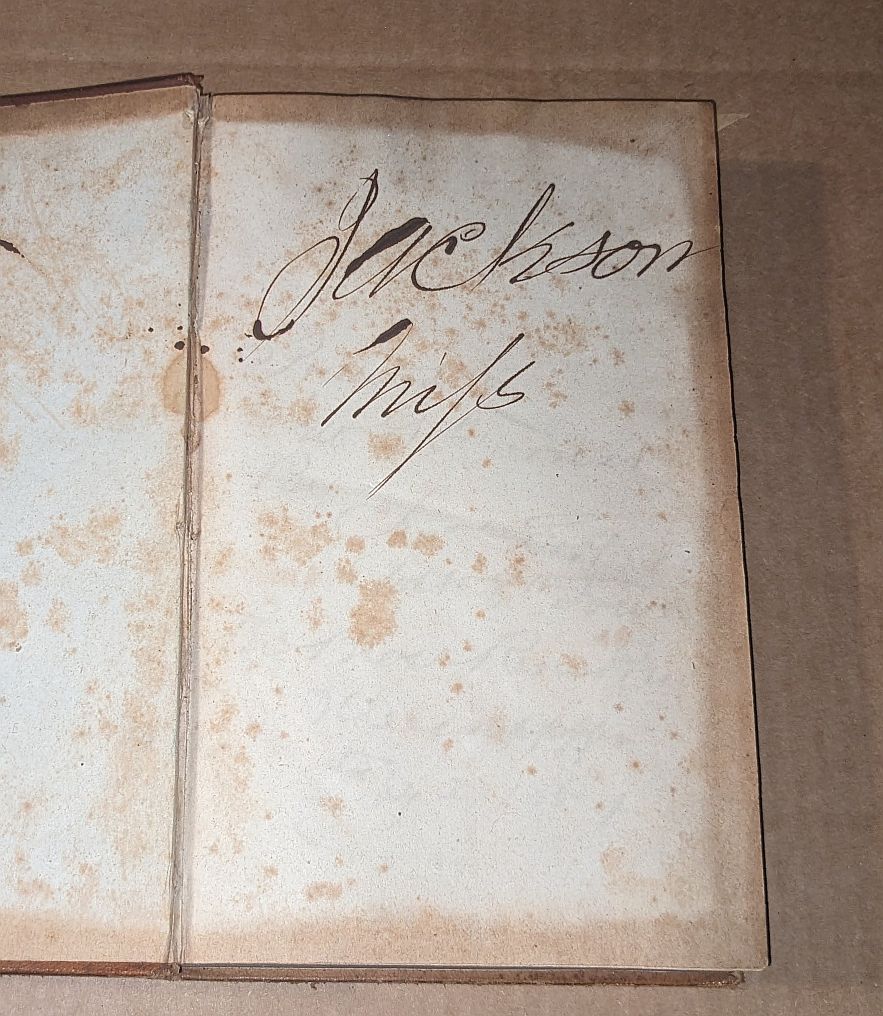 Jackson
Miſs